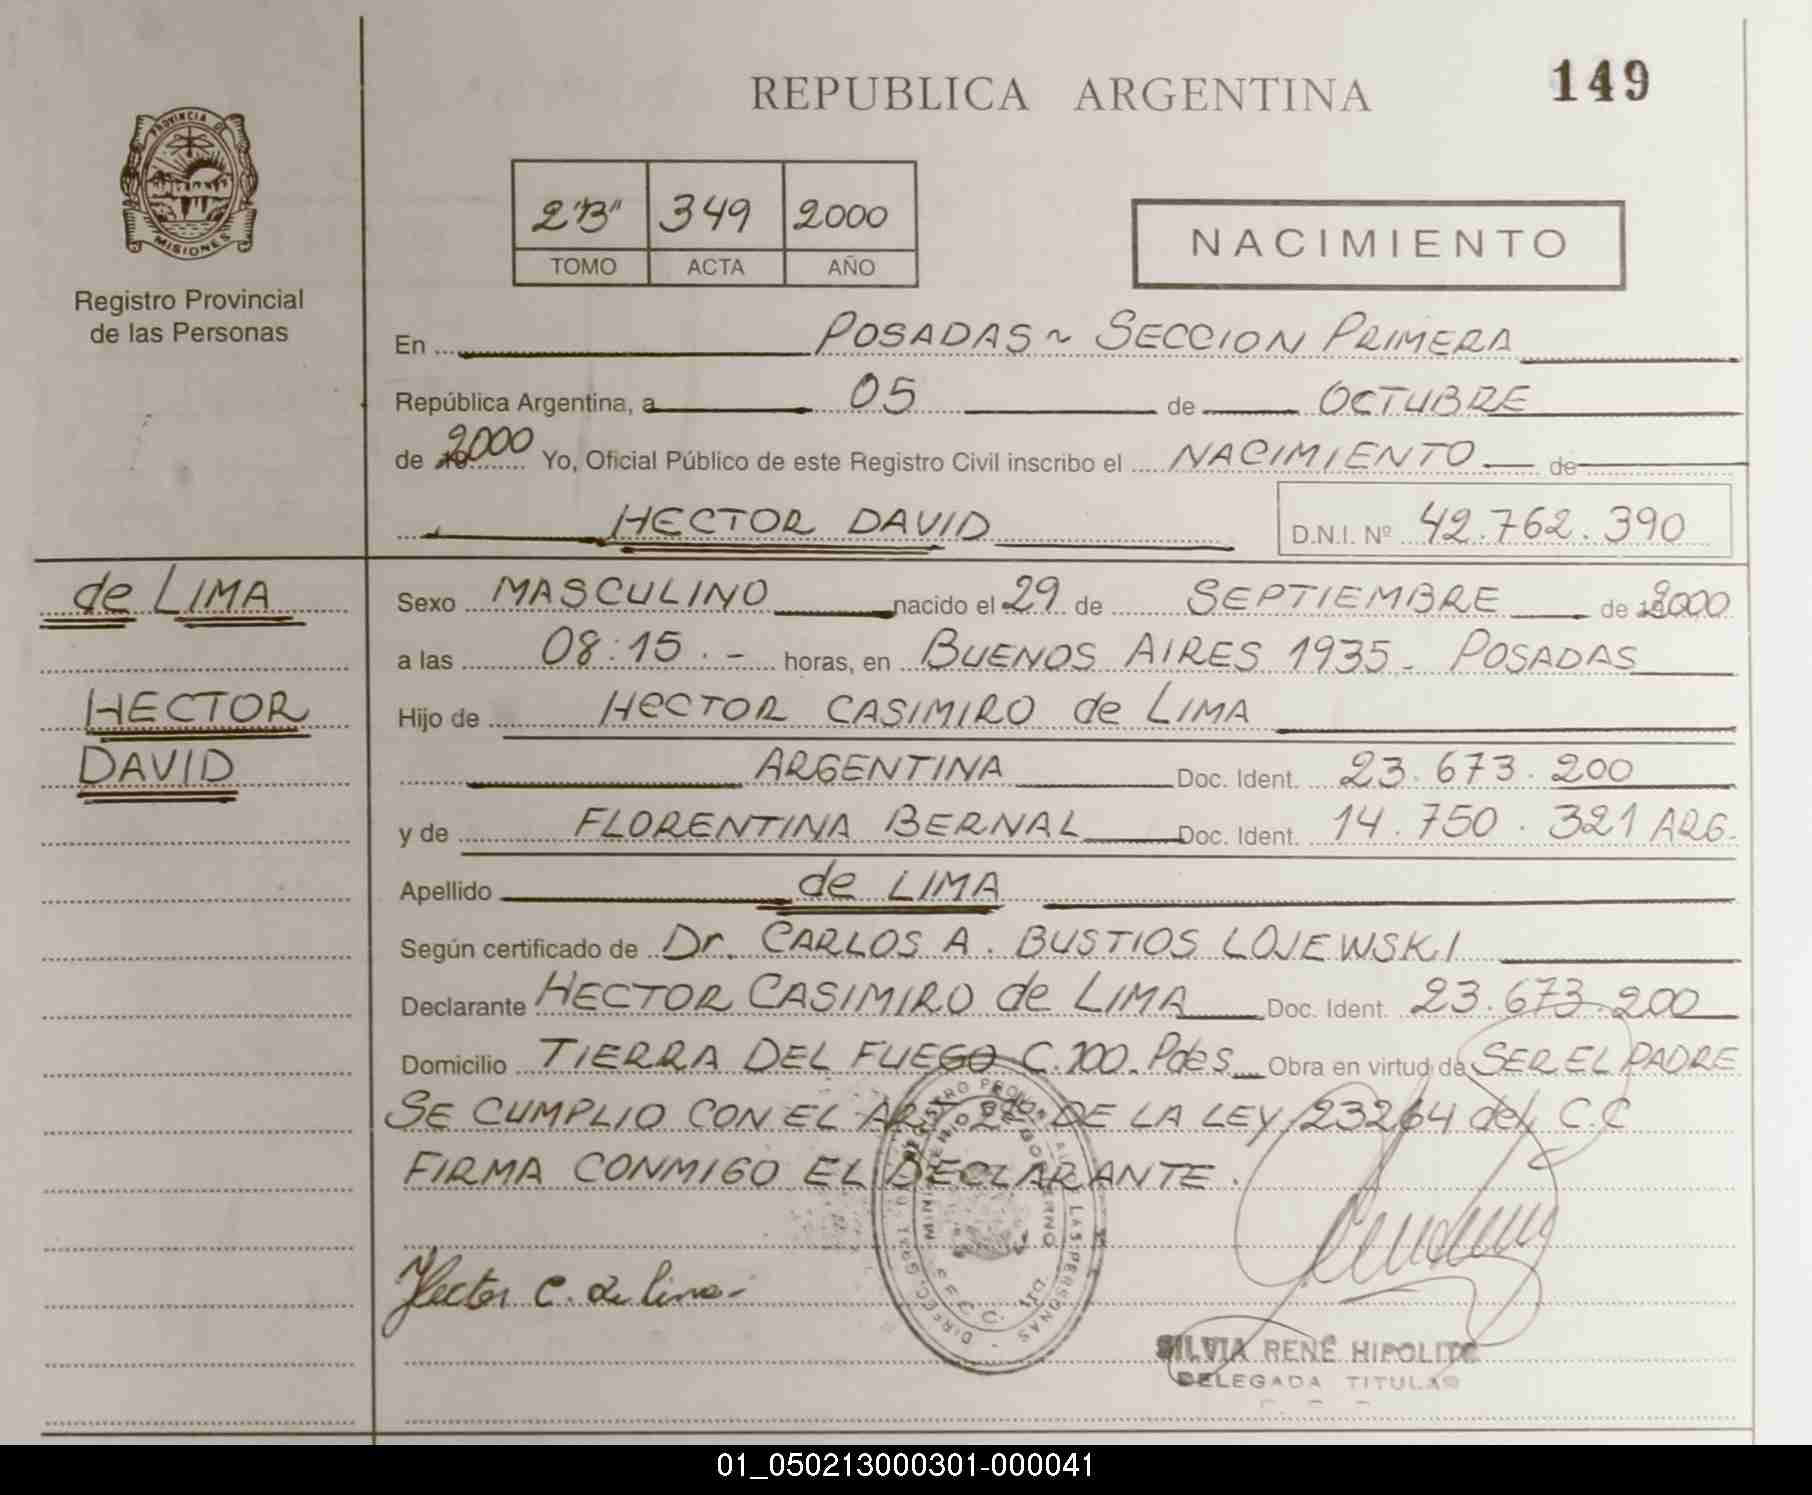 149
REPUBLICA ARGENTINA
PROVINCIA DE
MISIONES
Registro Provincial
de las Personas
2"B" 349 2000
TOMO ACTA AÑO
NACIMIENTO
En POSADAS ~ SECCION PRIMERA
República Argentina, a 05 de OCTUBRE
de 2000 Yo, Oficial Público de este Registro Civil inscribo el NACIMIENTO de
HECTOR DAVID D.N.I. Nº 42.762.390
de LIMA
HECTOR
DAVID
Sexo MASCULINO nacido el 29 de SEPTIEMBRE de 2000
a las 08:15.- horas, en BUENOS AIRES 1935 - POSADAS
Hijo de HECTOR CASIMIRO de LIMA
ARGENTINA Doc. Ident. 23.673.200
y de FLORENTINA BERNAL Doc. Ident. 14.750.321 ARG.
Apellido de LIMA
Según certificado de Dr. CARLOS A. BUSTIOS LOJEWSKI
Declarante HECTOR CASIMIRO de LIMA Doc. Ident. 23.673.200
Domicilio TIERRA DEL FUEGO C.100. Pdes Obra en virtud de SER EL PADRE
SE CUMPLIO CON EL ART 2do DE LA LEY 23264 del C.C
FIRMA CONMIGO EL DECLARANTE.
Hector C. de lima-
SILVIA RENÉ HIPOLITO
DELEGADA TITULAR
01_050213000301-000041